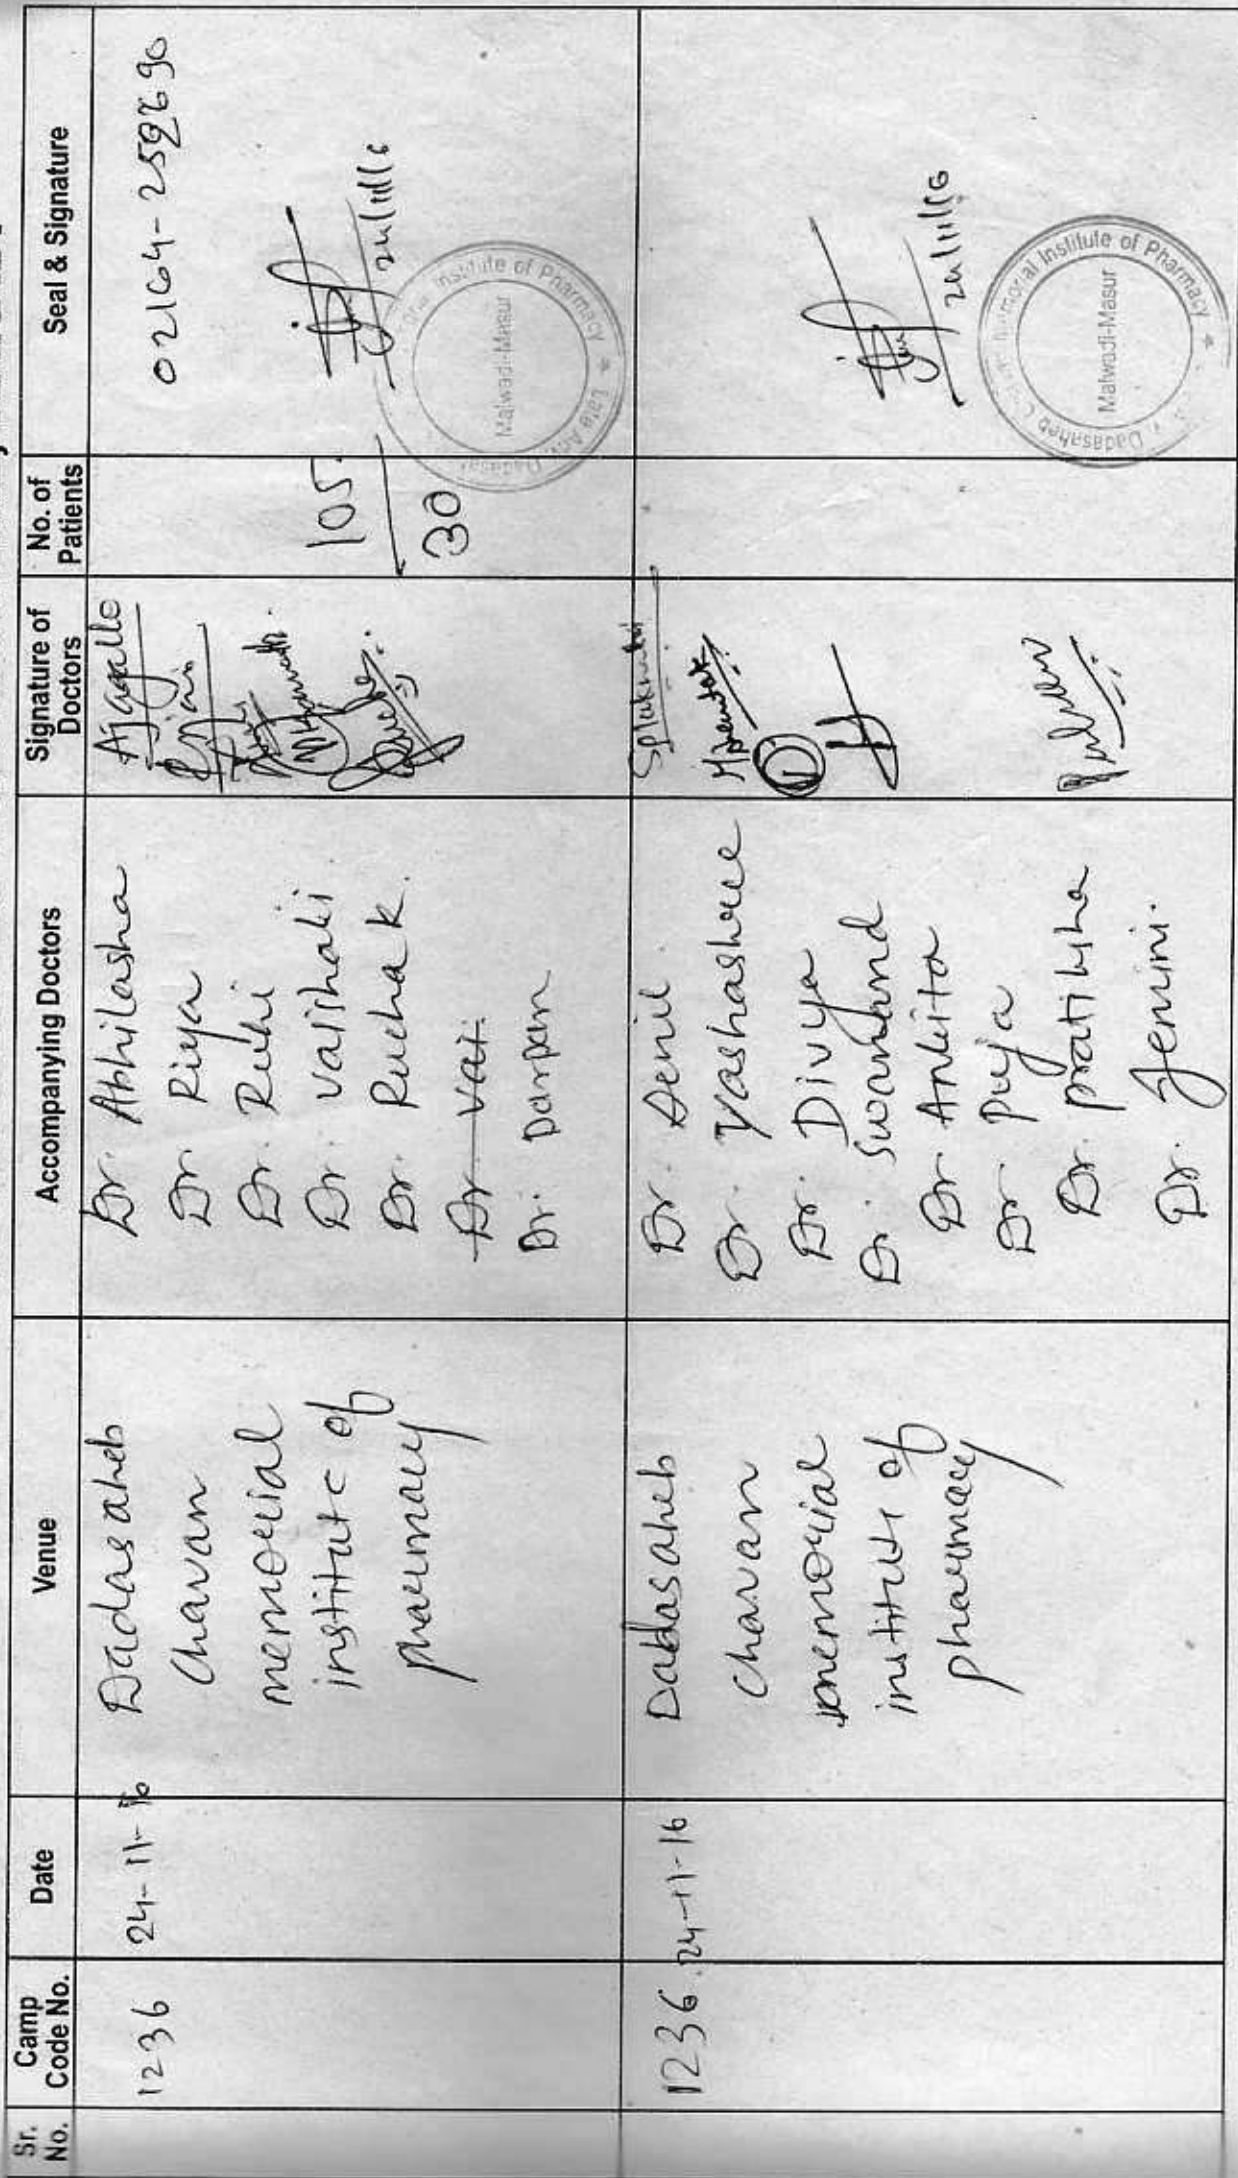 Sr. No.
Camp Code No.
Date
Venue
Accompanying Doctors
Signature of Doctors
No. of Patients
Seal & Signature
1236
24-11-16
Dadasaheb
Chavan
memorial
institute of
pharmacy
Dr. Abhilasha
Dr. Riya
Dr. Ruhi
Dr. Vaishali
Dr. Rucha K.
Dr. Vai
Dr. Darpan
105
30
24/11/16
Institute of Pharmacy * Late Adv. Dadasa
Malwadi-Masur
1236
24-11-16
Dadasaheb
Chavan
memorial
institute of
pharmacy
Dr.
Dr. Yashashree
Dr. Divya
Dr. Swanand
Dr Ankita
Dr
Dr. Pratiksha
Dr. Jemini.
24/11/16
Dadasaheb Memorial Institute of Pharmacy *
Malwadi-Masur